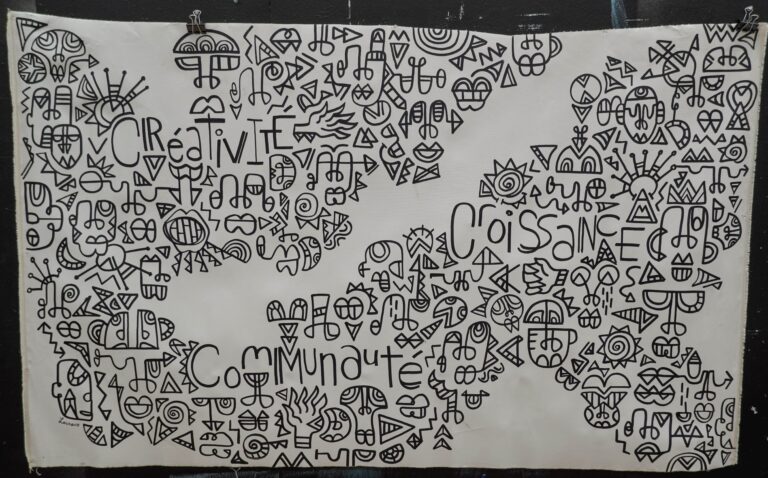 Créativité
Croissance
Communauté